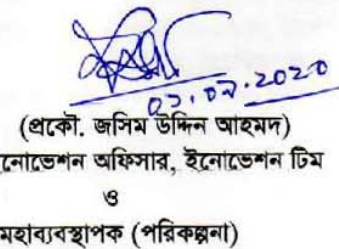 ০১.০৯.২০২০
(প্রকৌ. জসিম উদ্দিন আহমদ)
নোভেশন অফিসার, ইনোভেশন টিম
ও
মহাব্যবস্থাপক (পরিকল্পনা)